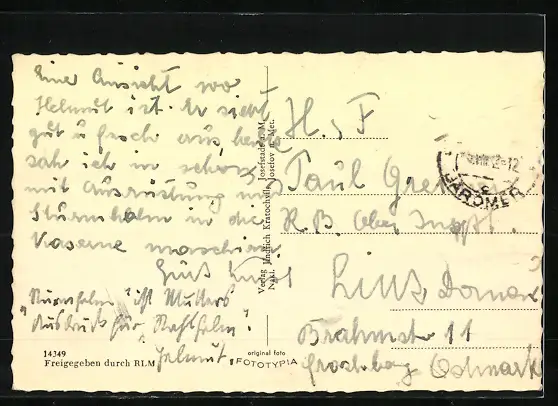 Eine Ansicht wo
Helmut ist. Er sieht
gut u frisch aus, heute
sah ich ihn schon
mit Ausrüstung u
Sturmhelm in die
Kaserne maschieren
Gruß
"Sturmhelm" ist Mutters
Ausdruck für "Stahlhelm".
Helmut.
14349
Freigegeben durch RLM
original foto
FOTOTYPIA
Verlag Jindřich Kratochvíl, Josefstadt a. M.
Nakl. Josefov Met.
H. F
Paul
R. B. Ober Inspkt.
Linz Donau
Brahmstr 11
Ostmark
JAROMĚŘ